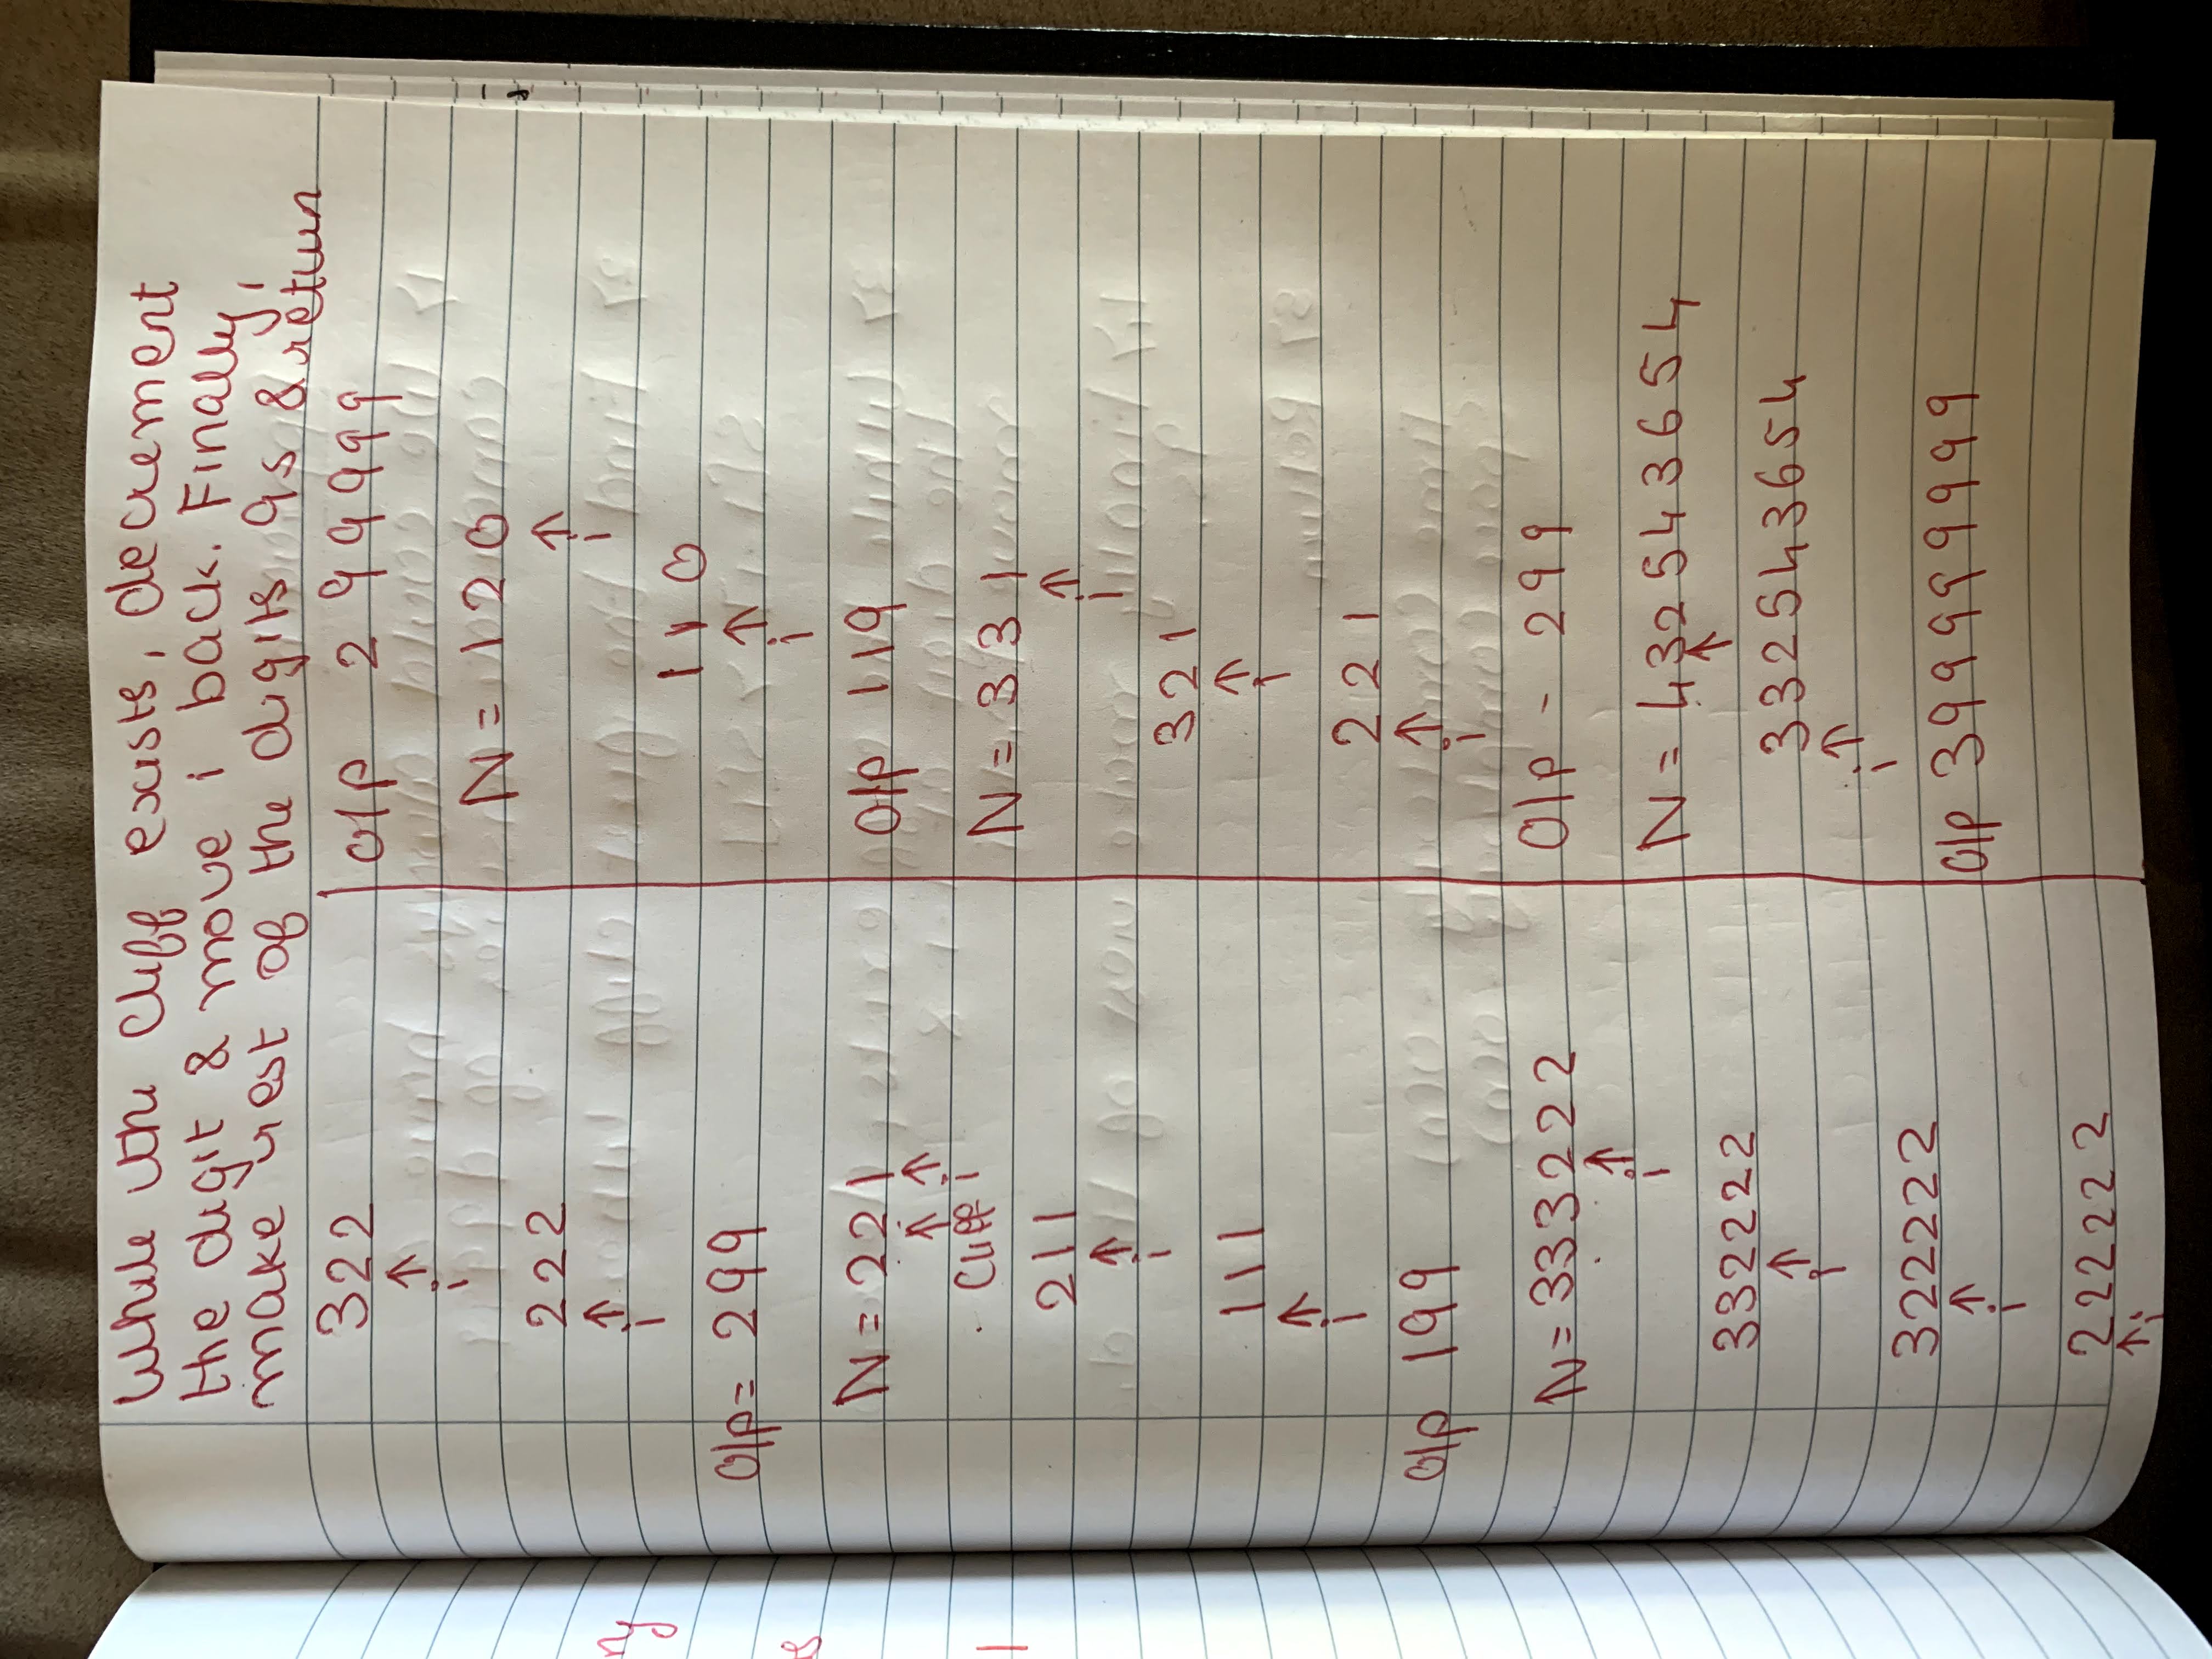 While the cliff exists, decrement
the digit & move i back. Finally,
make rest of the digits 9s & return
322
↑
i
222
↑
i
O/p = 299
N = 221
↑ ↑
Cliff i
211
↑
i
111
↑
i
O/p 199
N = 333222
↑
i
332222
↑
i
322222
↑
i
222222
↑
i
O/p 299999
N = 120
↑
i
110
↑
i
O/p 119
N = 331
↑
i
321
↑
i
221
↑
i
O/p - 299
N = 432543654
↑
332543654
↑
i
O/p 399999999